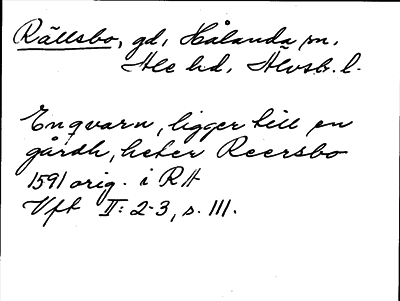 Rällsbo, gd, Hålanda sn,
Ale hd, Älvsb. l.
En qvarn, ligger till en
gårdh, heter Reersbo
1591 orig. i RA
Vft II: 2-3, s. 111.